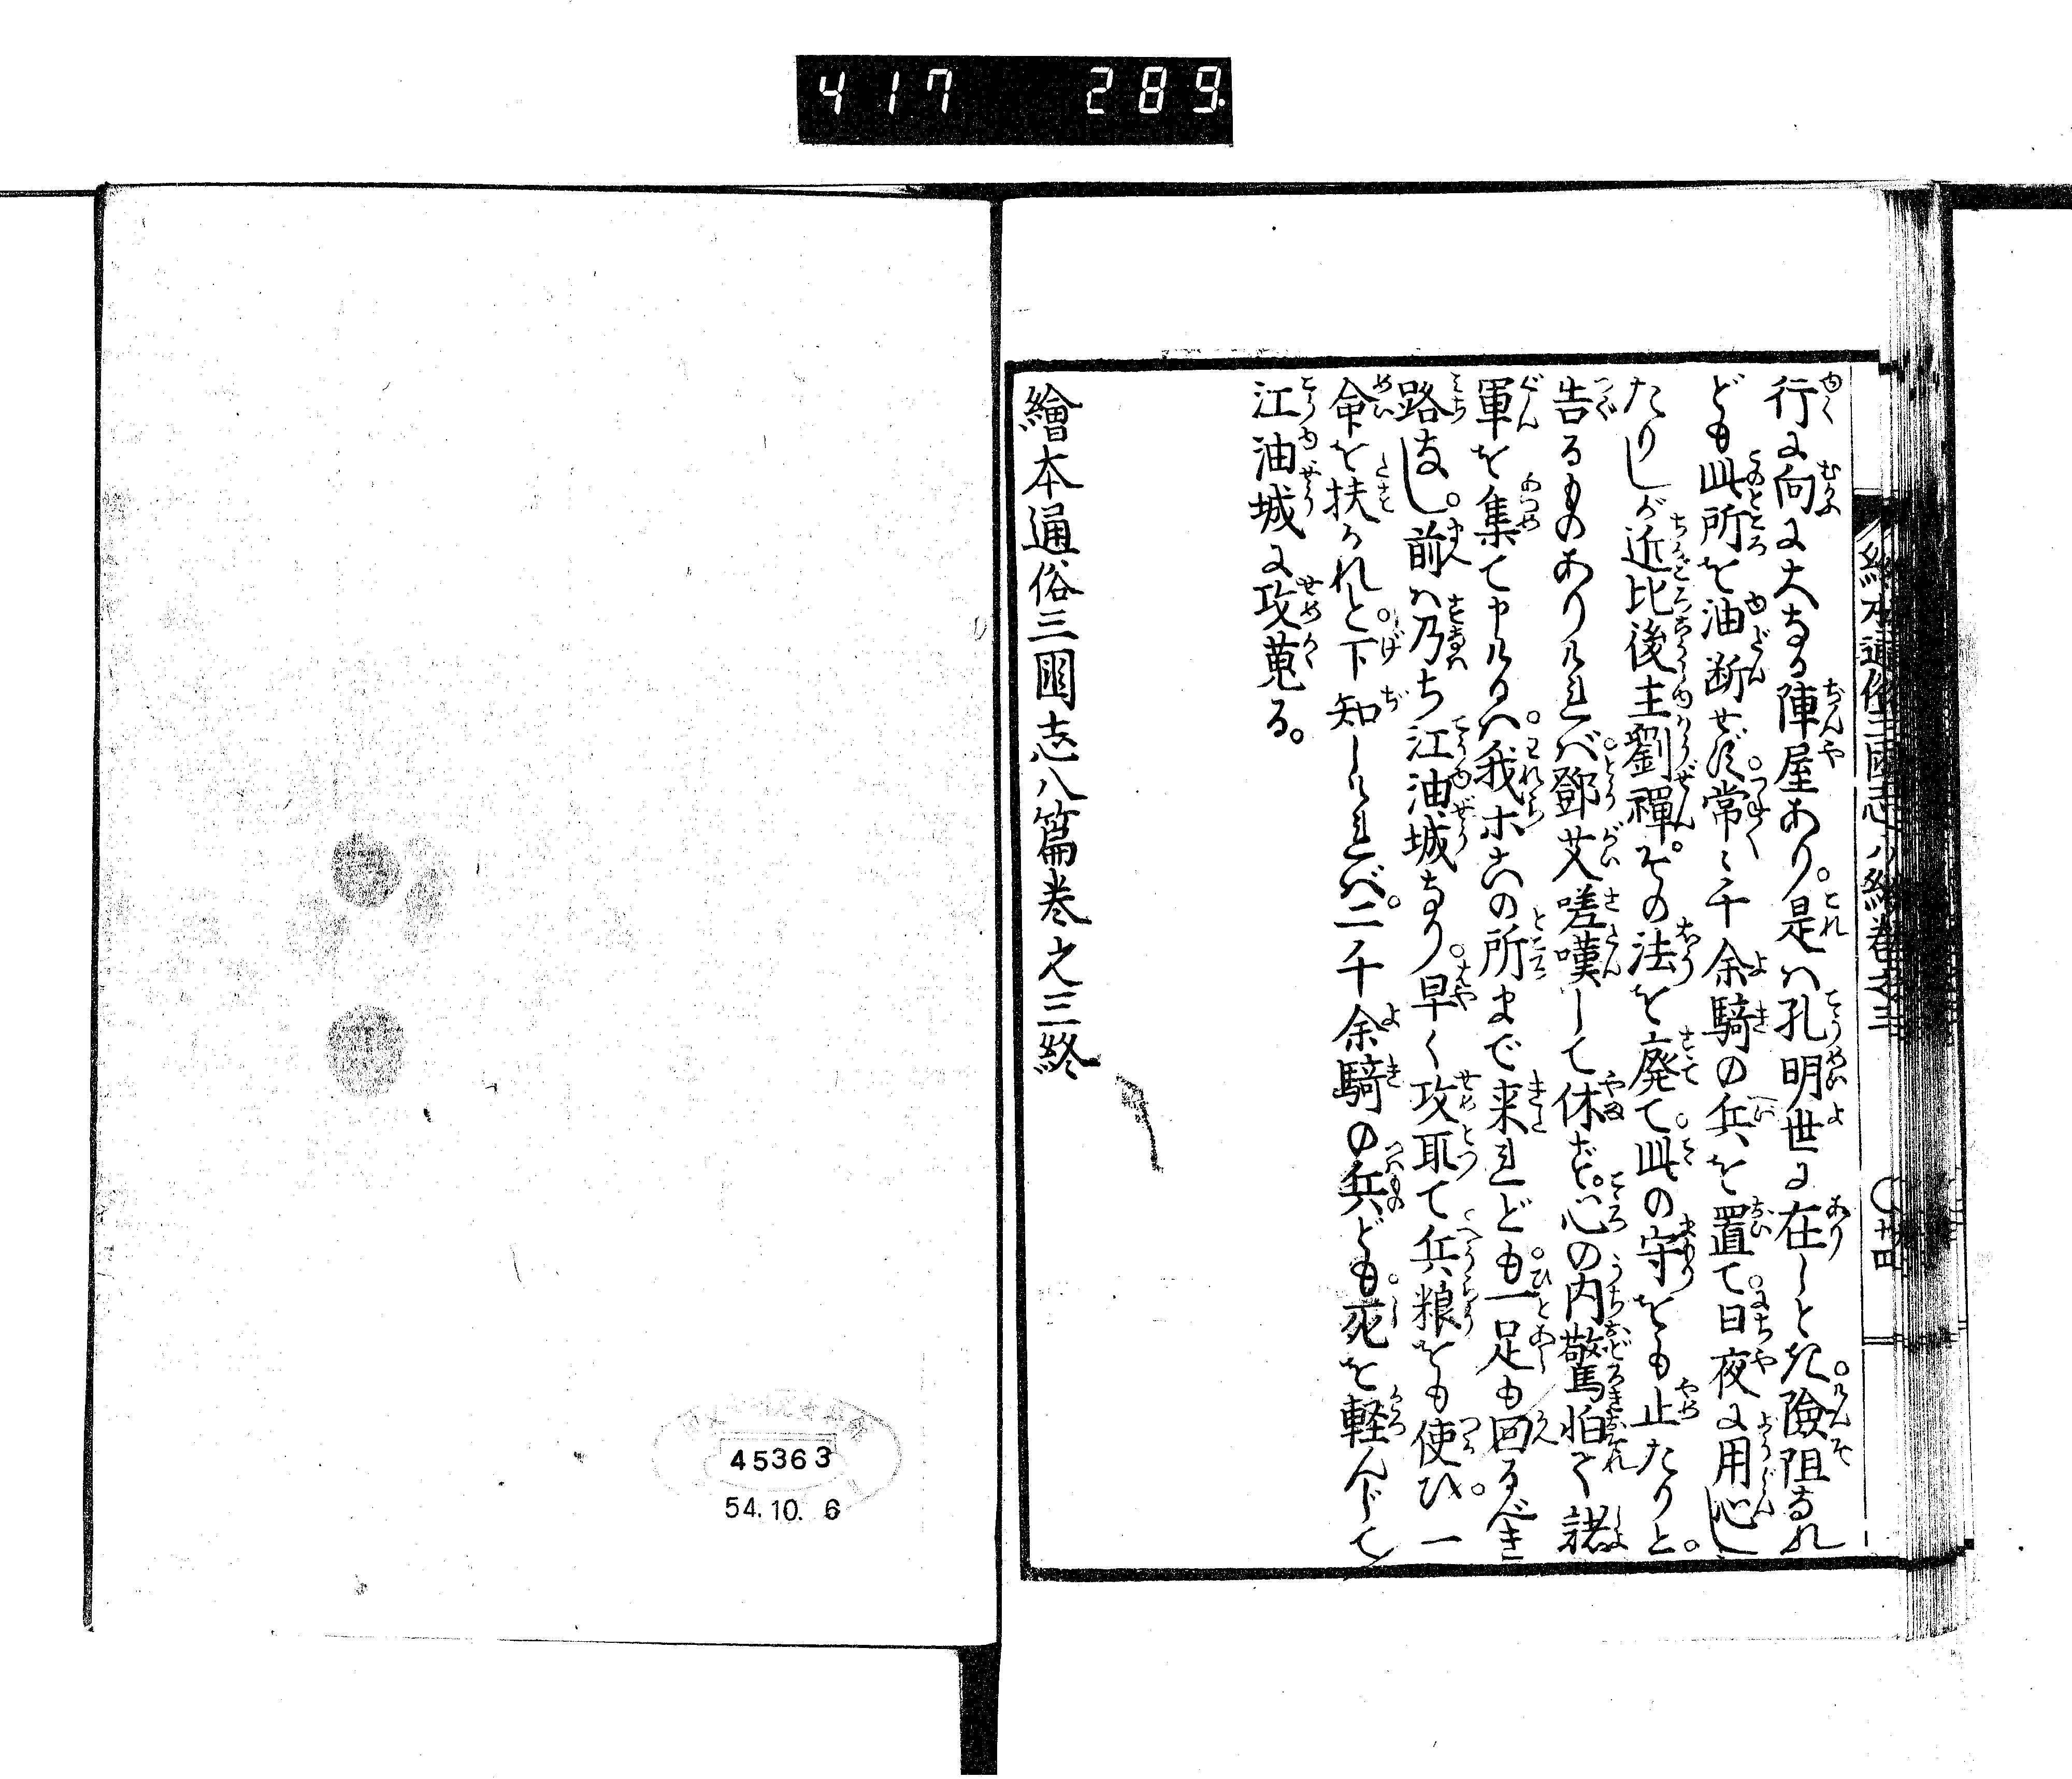 417 289
繪本通俗三國志八編卷之三
〇廿四
行に向に大なる陣屋あり。是ハ孔明世に在しとき。險阻なれ
ども此所を油断せず。常に千余騎の兵を置て。日夜に用心し
たりしが近比後主劉禪。その法を廃て。此の守をも止たりと。
告るものありければ。鄧艾嗟嘆して休ず。心の内驚怕て諸
軍を集て申けるハ。我等此の所まで来れども。一足も回るべき
路なし。前ハ乃ち江油城なり。早く攻取て兵粮をも使ひ。一
命を扶かれと。下知しければ。二千余騎の兵ども。死を軽んじて
江油城に攻蒐る。
繪本通俗三國志八篇卷之三終
45363
54.10.6